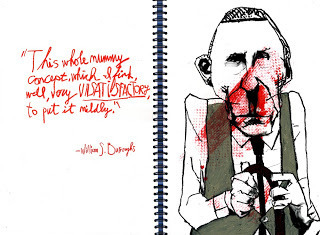 "This whole mummy
concept, which I find,
well, very UNSATISFACTORY,
to put it mildly."
-William S. Burroughs